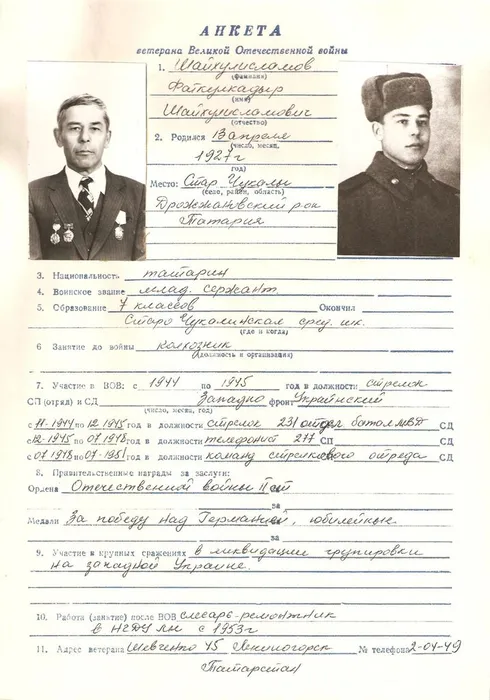 АНКЕТА
ветерана Великой Отечественной войны
1. Шайхулисламов
(фамилия)
Фаткулкадыр
(имя)
Шайхулисламович
(отчество)
2. Родился 13 апреля
(число, месяц,
1927 г
год)
Место: Стар Чукалы
(село, район, область)
Дрожжановский р-он
Татария
3. Национальность татарин
4. Воинское звание млад. сержант
5. Образование 7 классов Окончил
Старо Чукалинская сред. шк.
(где и когда)
6 Занятие до войны колхозник
(должность и организация)
7. Участие в ВОВ: с 1944 по 1945 год в должности стрелок
СП (отряд) и СД Западно фронт Украинский
(число, месяц, год)
с 11-1944 по 12.1945 год в должности стрелок 231 отдел батол МВД СД
с 12-1945 по 07.1948 год в должности телефонист 277 СП СД
с 07.1948 по 07-1951 год в должности команд стрелкового отряда СД
8. Правительственные награды за заслуги:
Ордена Отечественной войны II ст
за
Медали За победу над Германией, юбилейные
за
9. Участие в крупных сражениях в ликвидации групировки
на западной Украине.
10. Работа (занятие) после ВОВ слесарь-ремонтник
в НГДУ ЛН с 1953 г
11. Адрес ветерана Шевченко 45 Лениногорск № телефона 2-04-49
Татарстан